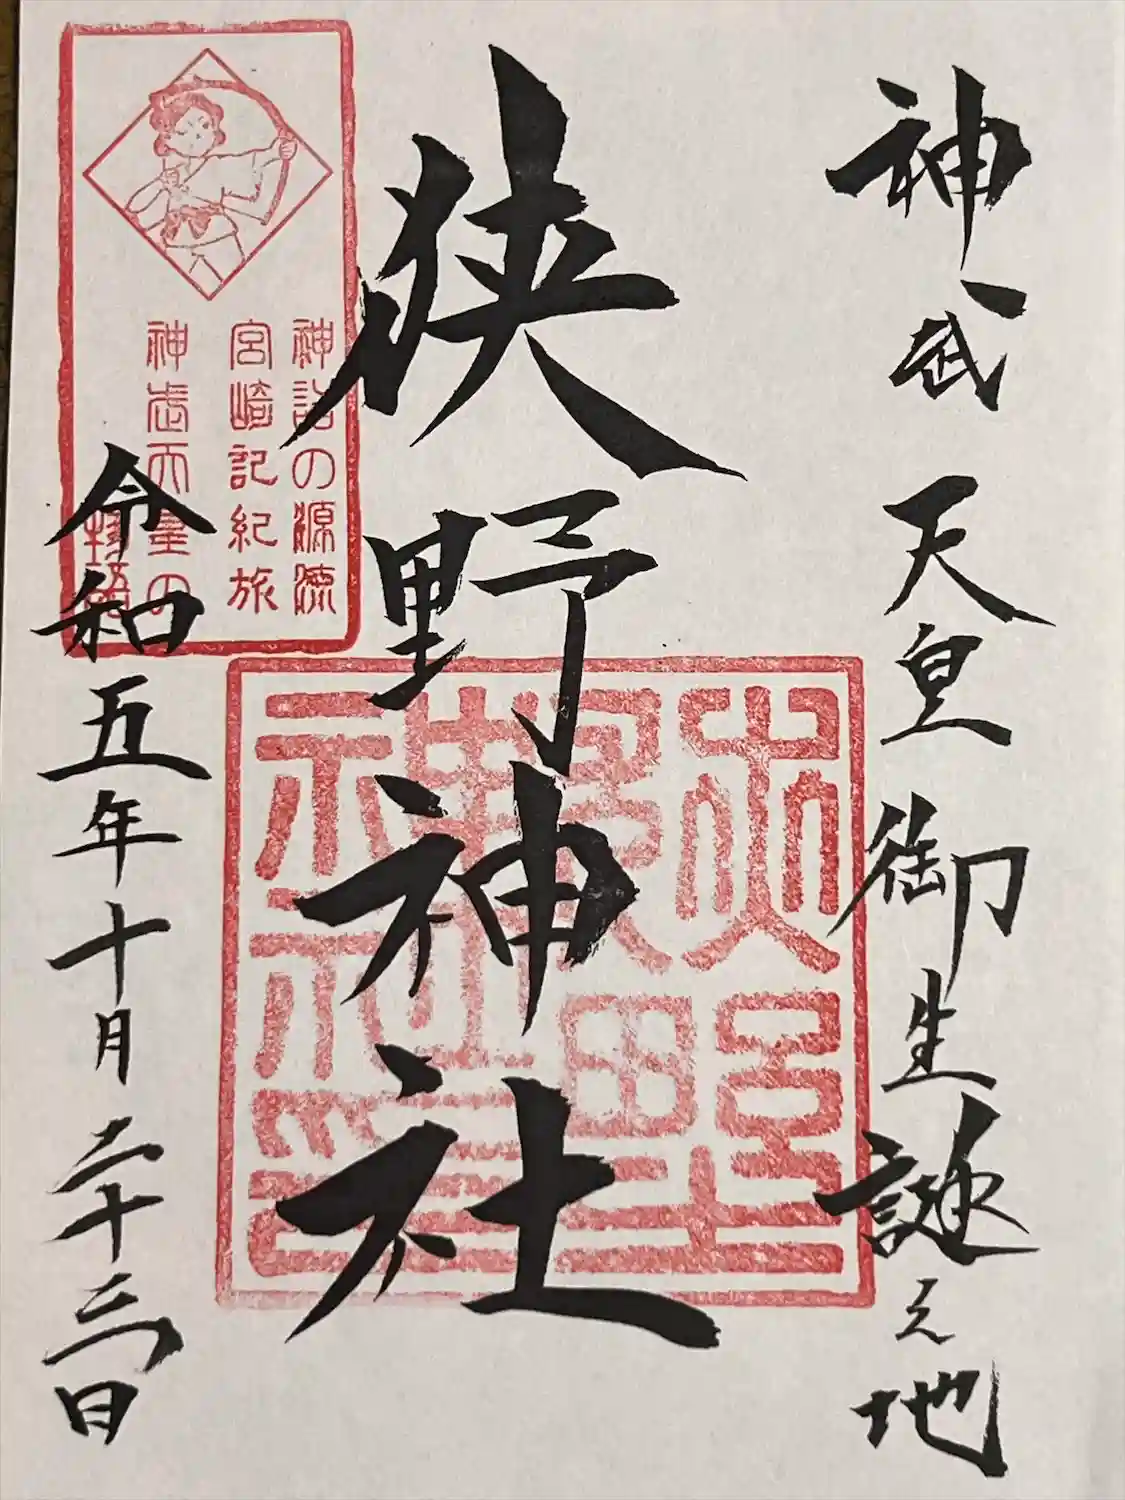 神武天皇御生誕之地
狭野神社
令和五年十月二十三日
神話の源流
宮崎記紀旅
神武天皇の
物語
狭野神社印